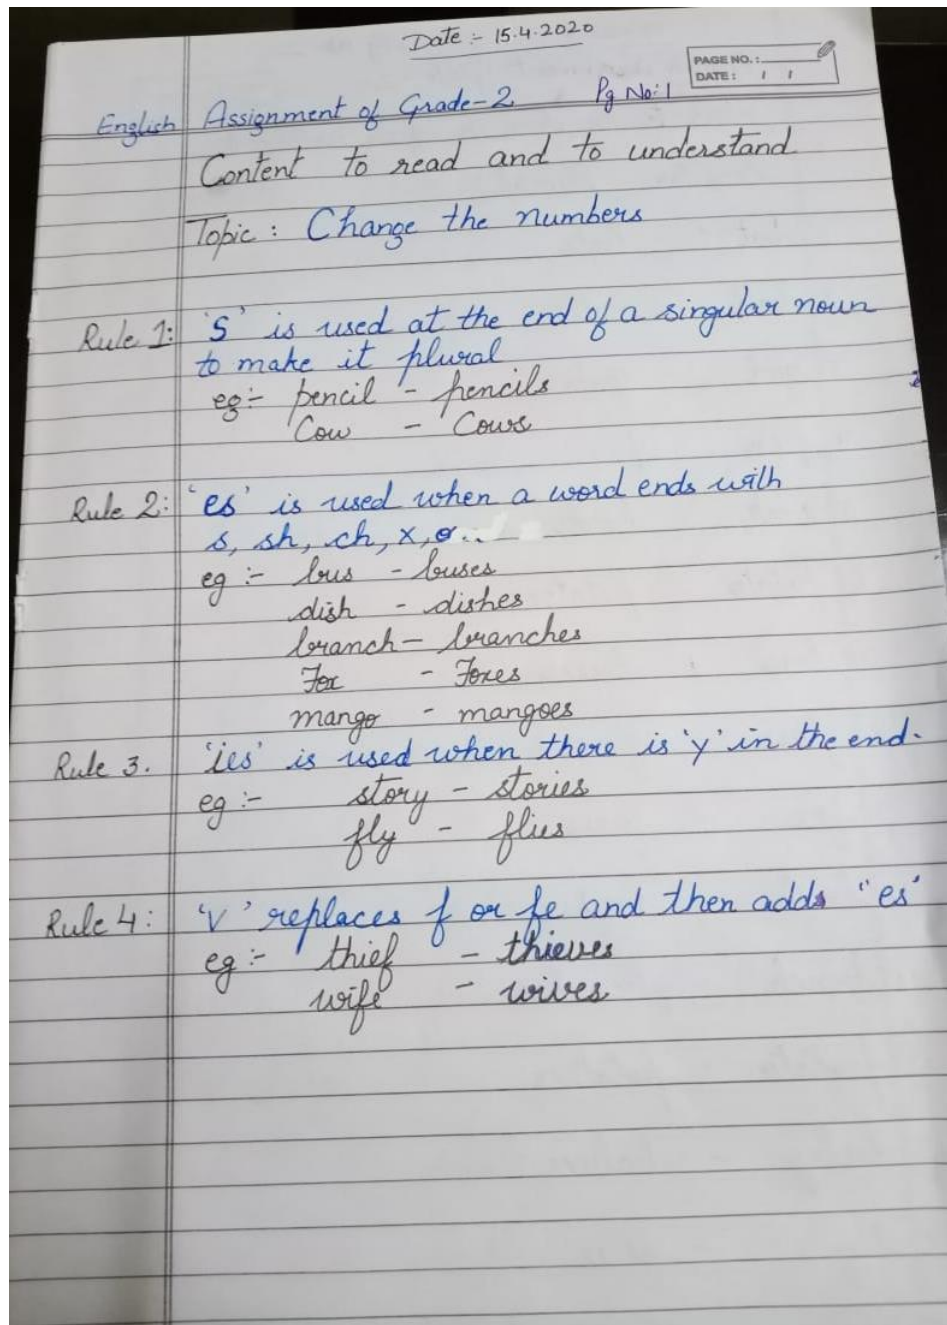 Date :- 15.4.2020
PAGE NO. :
DATE : / /
English Assignment of Grade-2 Pg No:1
Content to read and to understand
Topic : Change the numbers
Rule 1: 'S' is used at the end of a singular noun
to make it plural
eg :- pencil - pencils
Cow - Cows
Rule 2: 'es' is used when a word ends with
s, sh, ch, x, o..
eg :- bus - buses
dish - dishes
branch - branches
Fox - Foxes
mango - mangoes
Rule 3. 'ies' is used when there is 'y' in the end.
eg :- story - stories
fly - flies
Rule 4: 'V' replaces f or fe and then adds "es"
eg :- thief - thieves
wife - wives